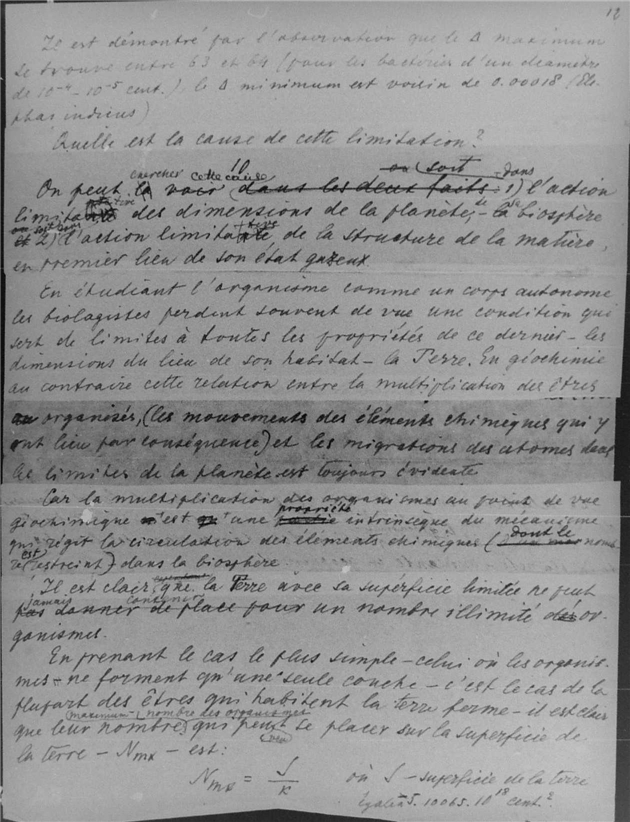 12
Il est démontré par l'observation que le Δ maximum
se trouve entre 63 et 64 (pour les bactéries d'un diamètre
de 10⁻⁴ – 10⁻⁵ cent.) le Δ minimum est voisin de 0.00018 (Ele-
phas indicus)
Quelle est la cause de cette limitation?
chercher cette cause ou (soit dans
On peut la voir (dans les deux faits: 1) l'action
limitative des dimensions de la planète, – de la biosphère
et 2) l'action limitative de la structure de la matière,
en premier lieu de son état gazeux
En étudiant l'organisme comme un corps autonome
les biologistes perdent souvent de vue une condition qui
sert de limites à toutes les propriétés de ce dernier – les
dimensions du lieu de son habitat – la Terre. En géochimie
au contraire cette relation entre la multiplication des êtres
organisés, (les mouvements des éléments chimiques qui y
ont lieu par conséquence) et les migrations des atomes dans
les limites de la planète est toujours évidente
Car la multiplication des organismes au point de vue
propriété
géochimique n'est qu'une intrinsèque du mécanisme
qui régit la circulation des éléments chimiques (dont le nomb-
re est restreint) dans la biosphère
Il est clair que la Terre avec sa superficie limitée ne peut
jamais
pas donner de place pour un nombre illimité d'or-
ganismes.
En prenant le cas le plus simple – celui où les organis-
mes – ne forment qu'une seule couche – c'est le cas de la
plupart des êtres qui habitent la terre ferme – il est clair
maximum nombre des organismes
que leur nombre, qui peut se placer sur la superficie de
la terre – Nmx – est:
Nmx = S/K où S – superficie de la terre
égale à 5.10065.10¹⁸ cent.²